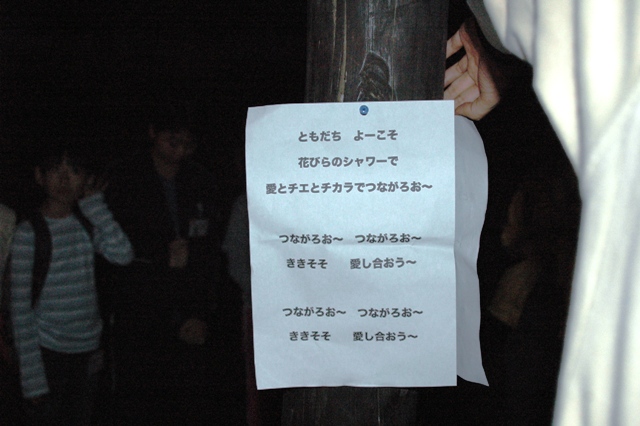 ともだち　よーこそ
花びらのシャワーで
愛とチエとチカラでつながろお～
つながろお～　つながろお～
ききそそ　愛し合おう～
つながろお～　つながろお～
ききそそ　愛し合おう～